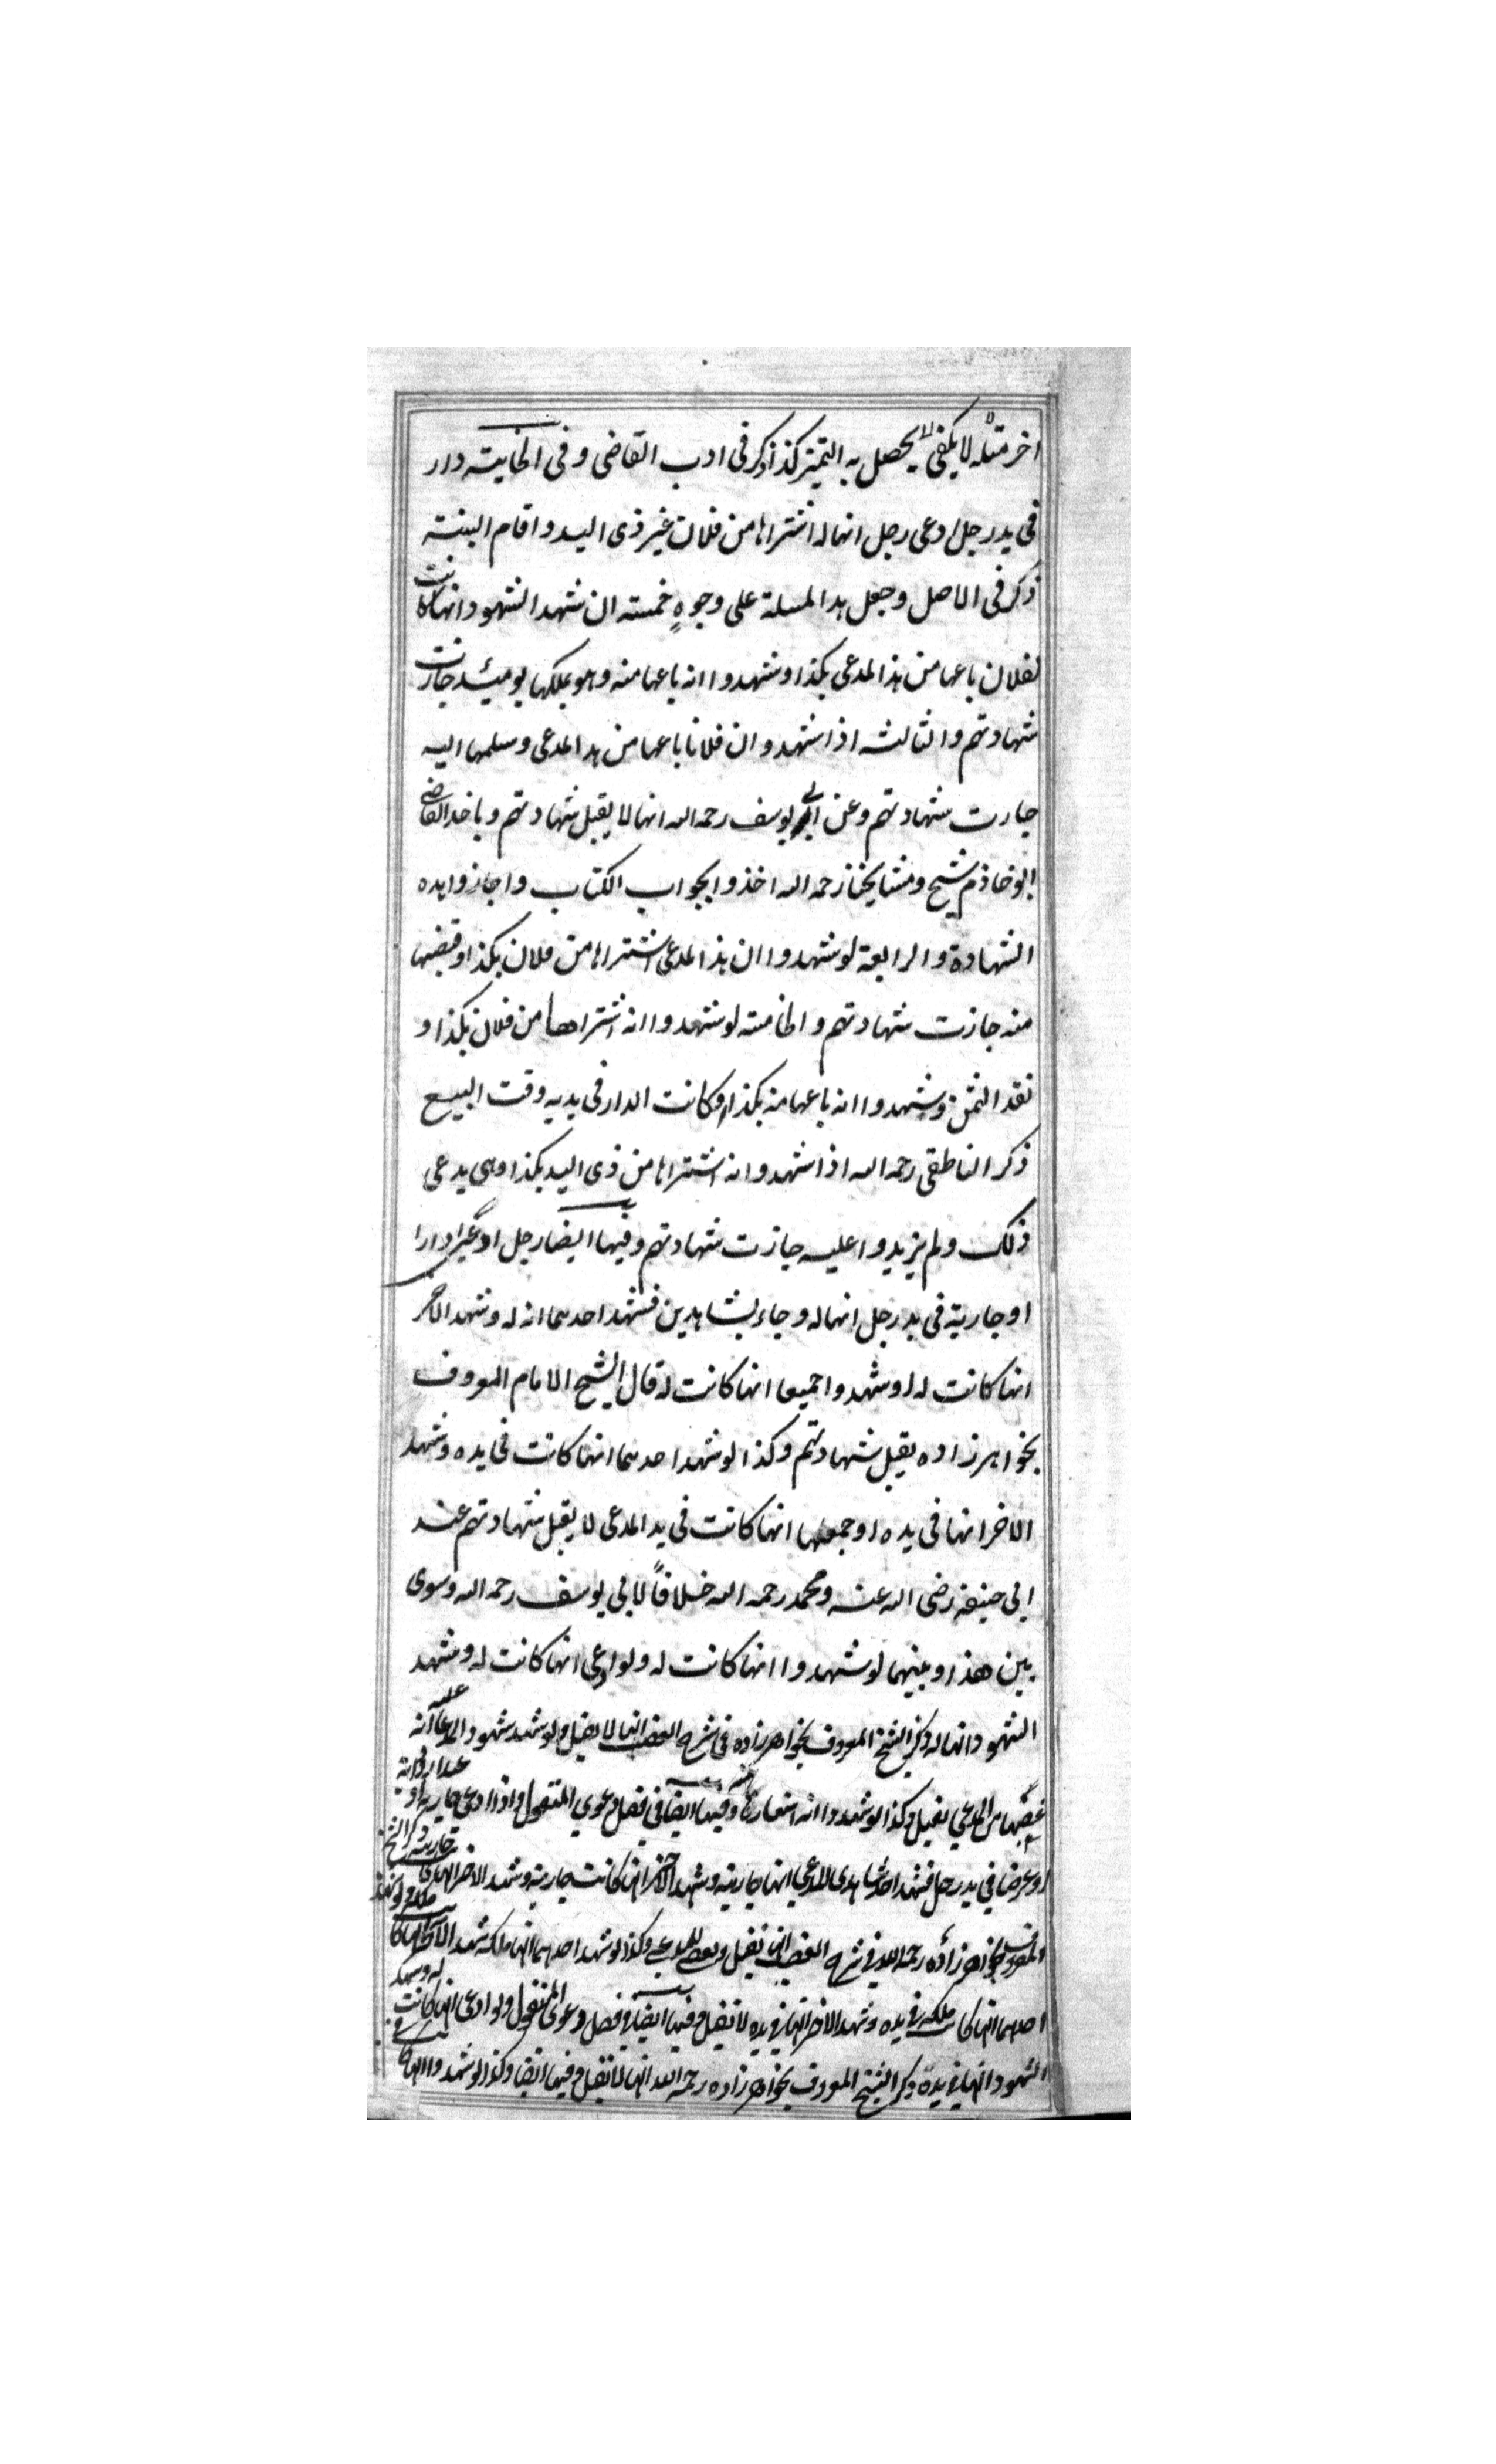 اخر مثله لا يكفى لا يحصل به التميز كذا ذكر فى ادب القاضى و فى الخانية دار
فى يد رجل ادعى رجل انها له اشتراها من فلان غير ذى اليد و اقام البينة
ذكر فى الاصل و جعل هذا المسلة على وجوهٍ خمسته ان شهد الشهود انها كانت
لفلان باعها من هذا المدعى بكذا و شهدوا انه باعها منه وهو يملكها يومئذ جازت
شهادتهم والثالثه اذا شهدوا ان فلانا باعها من هذا المدعى وسلمها اليه
جازت شهادتهم و عن ابى يوسف رحمه الله انها لا يقبل شهادتهم و ياخذ القاضى
ابو خاذم شيخ و مشايخنا رحمه الله اخذوا بجواب الكتاب و اجازوا هذه
الشهادة و الرابعة لو شهدوا ان هذا المدعى اشتراها من فلان بكذا و قبضها
منه جازت شهادتهم و الخامسه لو شهدوا انه اشتراها من فلان بكذا و
نقد الثمن و شهدوا انه باعها منه بكذا و كانت الدار فى يديه وقت البيع
ذكر الناطقى رحمه الله اذا شهدوا انه اشتراها من ذى اليد بكذا وهى يدعى
ذلك و لم يزيدوا عليه جازت شهادتهم و فيها ايضا رجل ادعى دارا
او جارية فى يد رجل انها له و جاء بشاهدين فشهد احدهما انه له و شهد الاخر
انها كانت له او شهدوا جميعا انها كانت له قال الشيخ الامام المعروف
بخواهرزاده يقبل شهادتهم و كذا لو شهد احدهما انها كانت فى يده و شهد
الاخر انها فى يده او جميعها انها كانت فى يد المدعى لا يقبل شهادتهم عند
ابى حنيفه رضى الله عنه و محمد رحمه الله خلافاً لابى يوسف رحمه الله و سوى
بين هذا و بينهما لو شهدوا انها كانت له و لو ادعى انها كانت له و شهد
الشهود انها له ذكر الشيخ المعروف بخواهرزاده فى شرح الغصب انها لا يقبل و لو شهد شهود المدعا عليه انه
غصبها من المدعي يقبل و كذا لو شهدوا انه استعارها و فيها ايضا في فصل دعوي المنقول و اذا ادعى جارية او
او عرضا في يد رجل فشهد احد شاهدي المدعي انها جاريته و شهد الاخر انها كانت جاريته
المعروف بخواهرزاده رحمه الله في شرح الغصب انها يقبل و كذا لو شهد احدهما انها ملكه و شهد الاخر انها كا
احدهما انها كا في يده و شهد الاخر انها في يده لا تقبل و فيها ايضا في فصل دعوى المنقول و لو ادعى انها كانت له و شهد
الشهود انها في يده ذكر الشيخ المعروف بخواهرزاده رحمه الله انها لا تقبل و فيها ايضا و كذا لو شهدوا انها كا